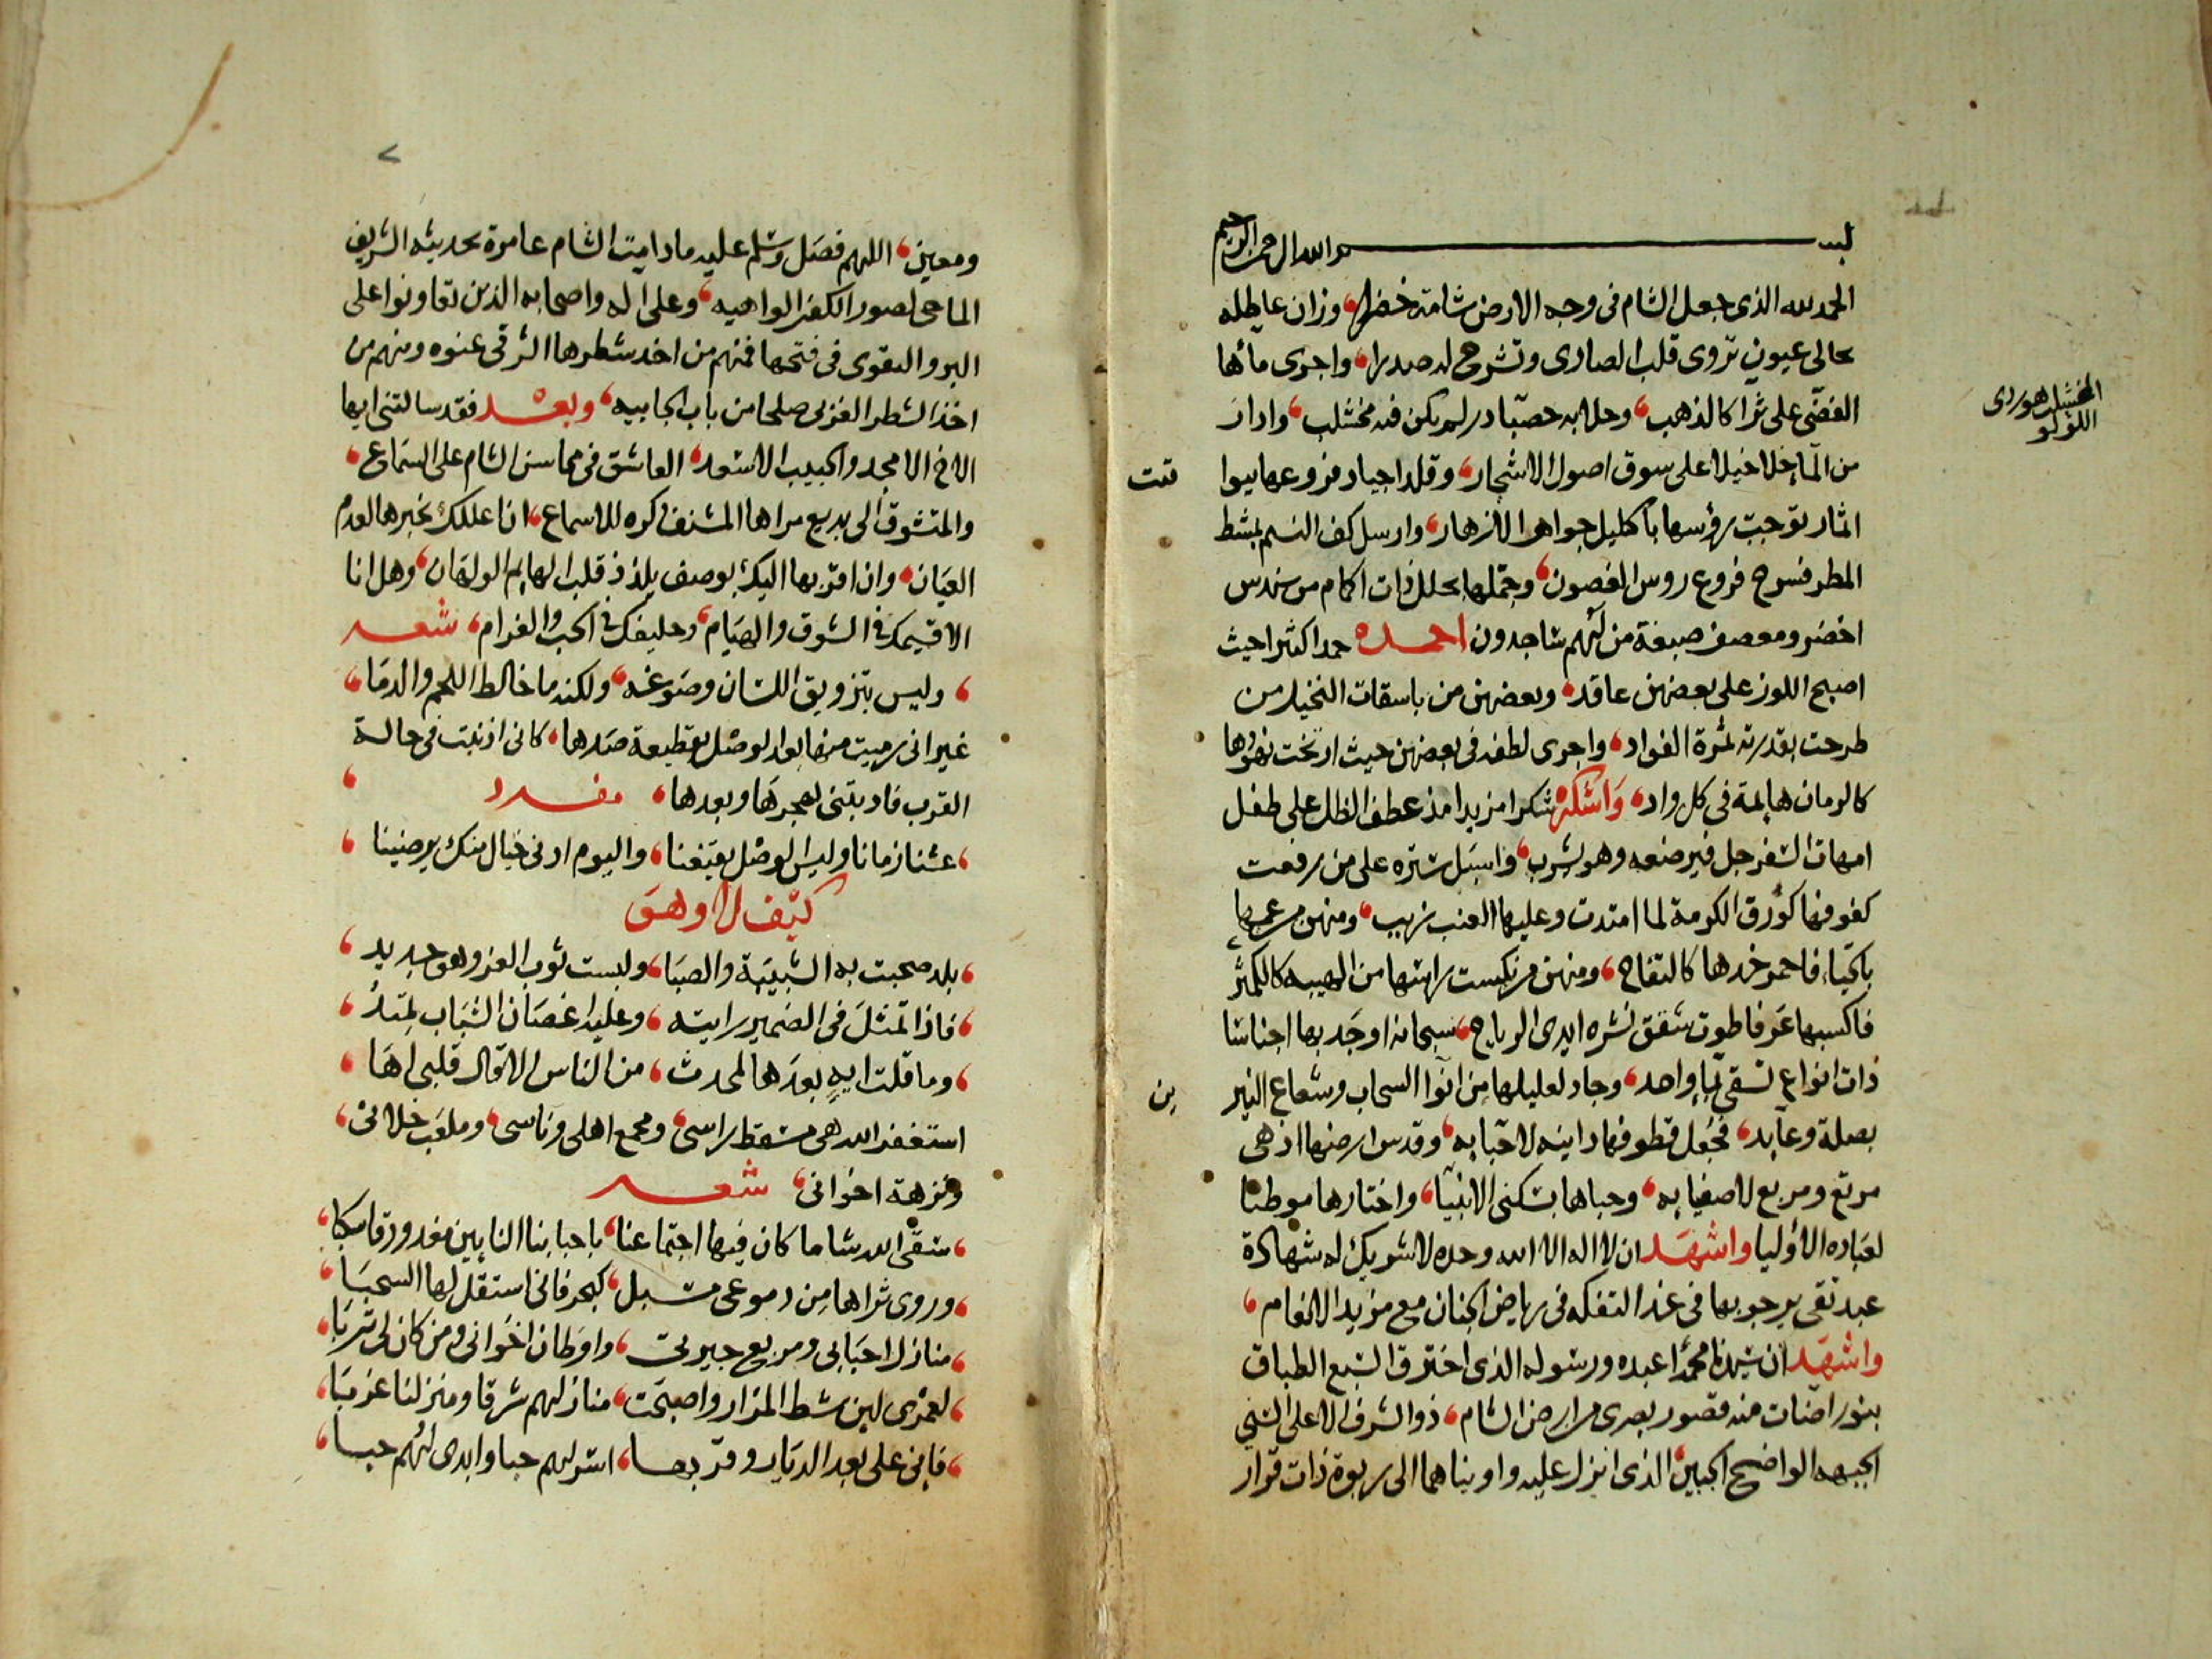 بسم الله الرحمن الرحيم
الحمد لله الذى جعل الشام فى وجه الارض شامة خضرا، وزان عاطله
بحالى عيون تروى قلب الصادى وتشرح له صدرا، واجرى مائها
الفضى على ثرا كالذهب، وحلا به حصبا در لم يكن فيه مخشلب، وادار
من الما خلاخيلا على سوق اصول الاشجار، وقلد اجياد فروعها بيوا
قت
الثمار توجت رؤسها باكليل جواهر الازهار، وارسل كف النسيم بمشط
المطر فسرح فروع روس الغصون، وجملها بحلل ذات اكمام من سندس
اخضر ومعصفر صبغة من لهم ساجدون احمده حمدا كثيرا حيث
اصبح اللوز على بعضهن عاقد، وبعضهن من باسقات النخيل من
طرحت بقدرته ثمرة الفواد، واجرى لطفه فى بعضهن حيث ارتخت نهودها
كالرمان هايمة فى كل واد، واشكره شكرا مزيدا مذ عطف الظل على طفل
امهات السفرجل فيرضعه وهو يشرب، واسبل ستره على من رفعت
كفوفها كورق الكرمة لما امتدت وعليها العنب زبيب، ومنهن من عمها
بالحياء فاحمر خدها كالتفاح، ومنهن من نكست راسها من الهيبه كالكمثر
فاكسبها عرفا طوت شقق نشره ايدى الرياح، سبحانه اوجد بها اجناسا
ذات انواع تسقى بماء واحد، وجاد لعليلها من انوا السحاب وشعاع النير
ين
بصلة وعايد، فجعل قطوفها دانيه لاحبابه، وقدس ارضها اذ هى
مرتع ومربع لاصفيايه، وحباها بسكنى الانبيا، واختارها موطنا
لعباده الأوليا واشهد ان لا اله الا الله وحده لا شريك له شهادة
عبد تقى يرجو بها فى غد التفكه فى رياض الجنان مع مزيد الانعام،
واشهد ان سيدنا محمدا عبده ورسوله الذى اخترق السبع الطباق
بنور اضات منه قصور بصرى من ارض الشام، ذو الشرف الاعلى السنى
الجبهه الواضح الجبين الذى انزل عليه واويناهما الى ربوة ذات قرار
المخشلب هو ردى
اللؤلؤ
ومعين، اللهم فصل وسلم عليه مادامت الشام عامرة بحديثه الشريف
الماحى لصور الكفر الواهيه، وعلى اله واصحابه الذين تعاونوا على
البر والتقوى فى فتحها فمنهم من اخذ شطرها الشرقى عنوه ومنهم من
اخذ الشطر الغربى صلحا من باب الجابيه، وبعد فقد سالتنى ايها
الاخ الامجد والحبيب الاسعد، العاشق فى محاسن الشام على السماع،
والمتشوق الى بديع مراها المشنف ذكره للاسماع، ان اعللك بخبرها لعدم
العيان، وان اقربها اليك بوصف يلذذ قلب الهايم الولهان، وهل انا
الا قسيمك فى الشوق والهيام، وحليفك فى الحب والغرام، شعر
، وليس بتزويق اللسان وصوغه، ولكنه ما خالط اللحم والدما،
غير انى رميت منها بعد الوصل بقطيعة صدها، كانى اذنبت فى حالة
القرب فادبتنى بهجرها وبعدها، مفرد
، عشنا زمانا وليس الوصل يقنعنا، واليوم ادنى خيال منك يرضينا،
كيف لا وهى
، بلد صحبت به الشبيبة والصبا، ولبست ثوب العز وهو جديد،
، فاذا تمثل فى الضمير رايته، وعليه اغصان الشباب تميد،
، وما قلت ايه بعدها لمحدث، من الناس الا قال قلبى اها،
استغفر الله هى مسقط راسى، ومجمع اهلى وناسى، وملعب خلانى،
ونزهة اخوانى، شعر
، سقى الله شاما كان فيها اجتماعنا، باحبابنا النايبين مغدودقا سكبا،
، وروى ثراها من دموعى مسبل، كبحر فانى استقل لها السحبا،
، منازل احبابى ومربع جيرتى، واوطان اخوانى ومن كان لى تربا،
، لعمرى لين شط المزار واصبحت، منازلهم شرقا ومنزلنا غربا،
، فانى على بعد الديار وقربها، اسر لهم حبا وابدى لهم حبا،